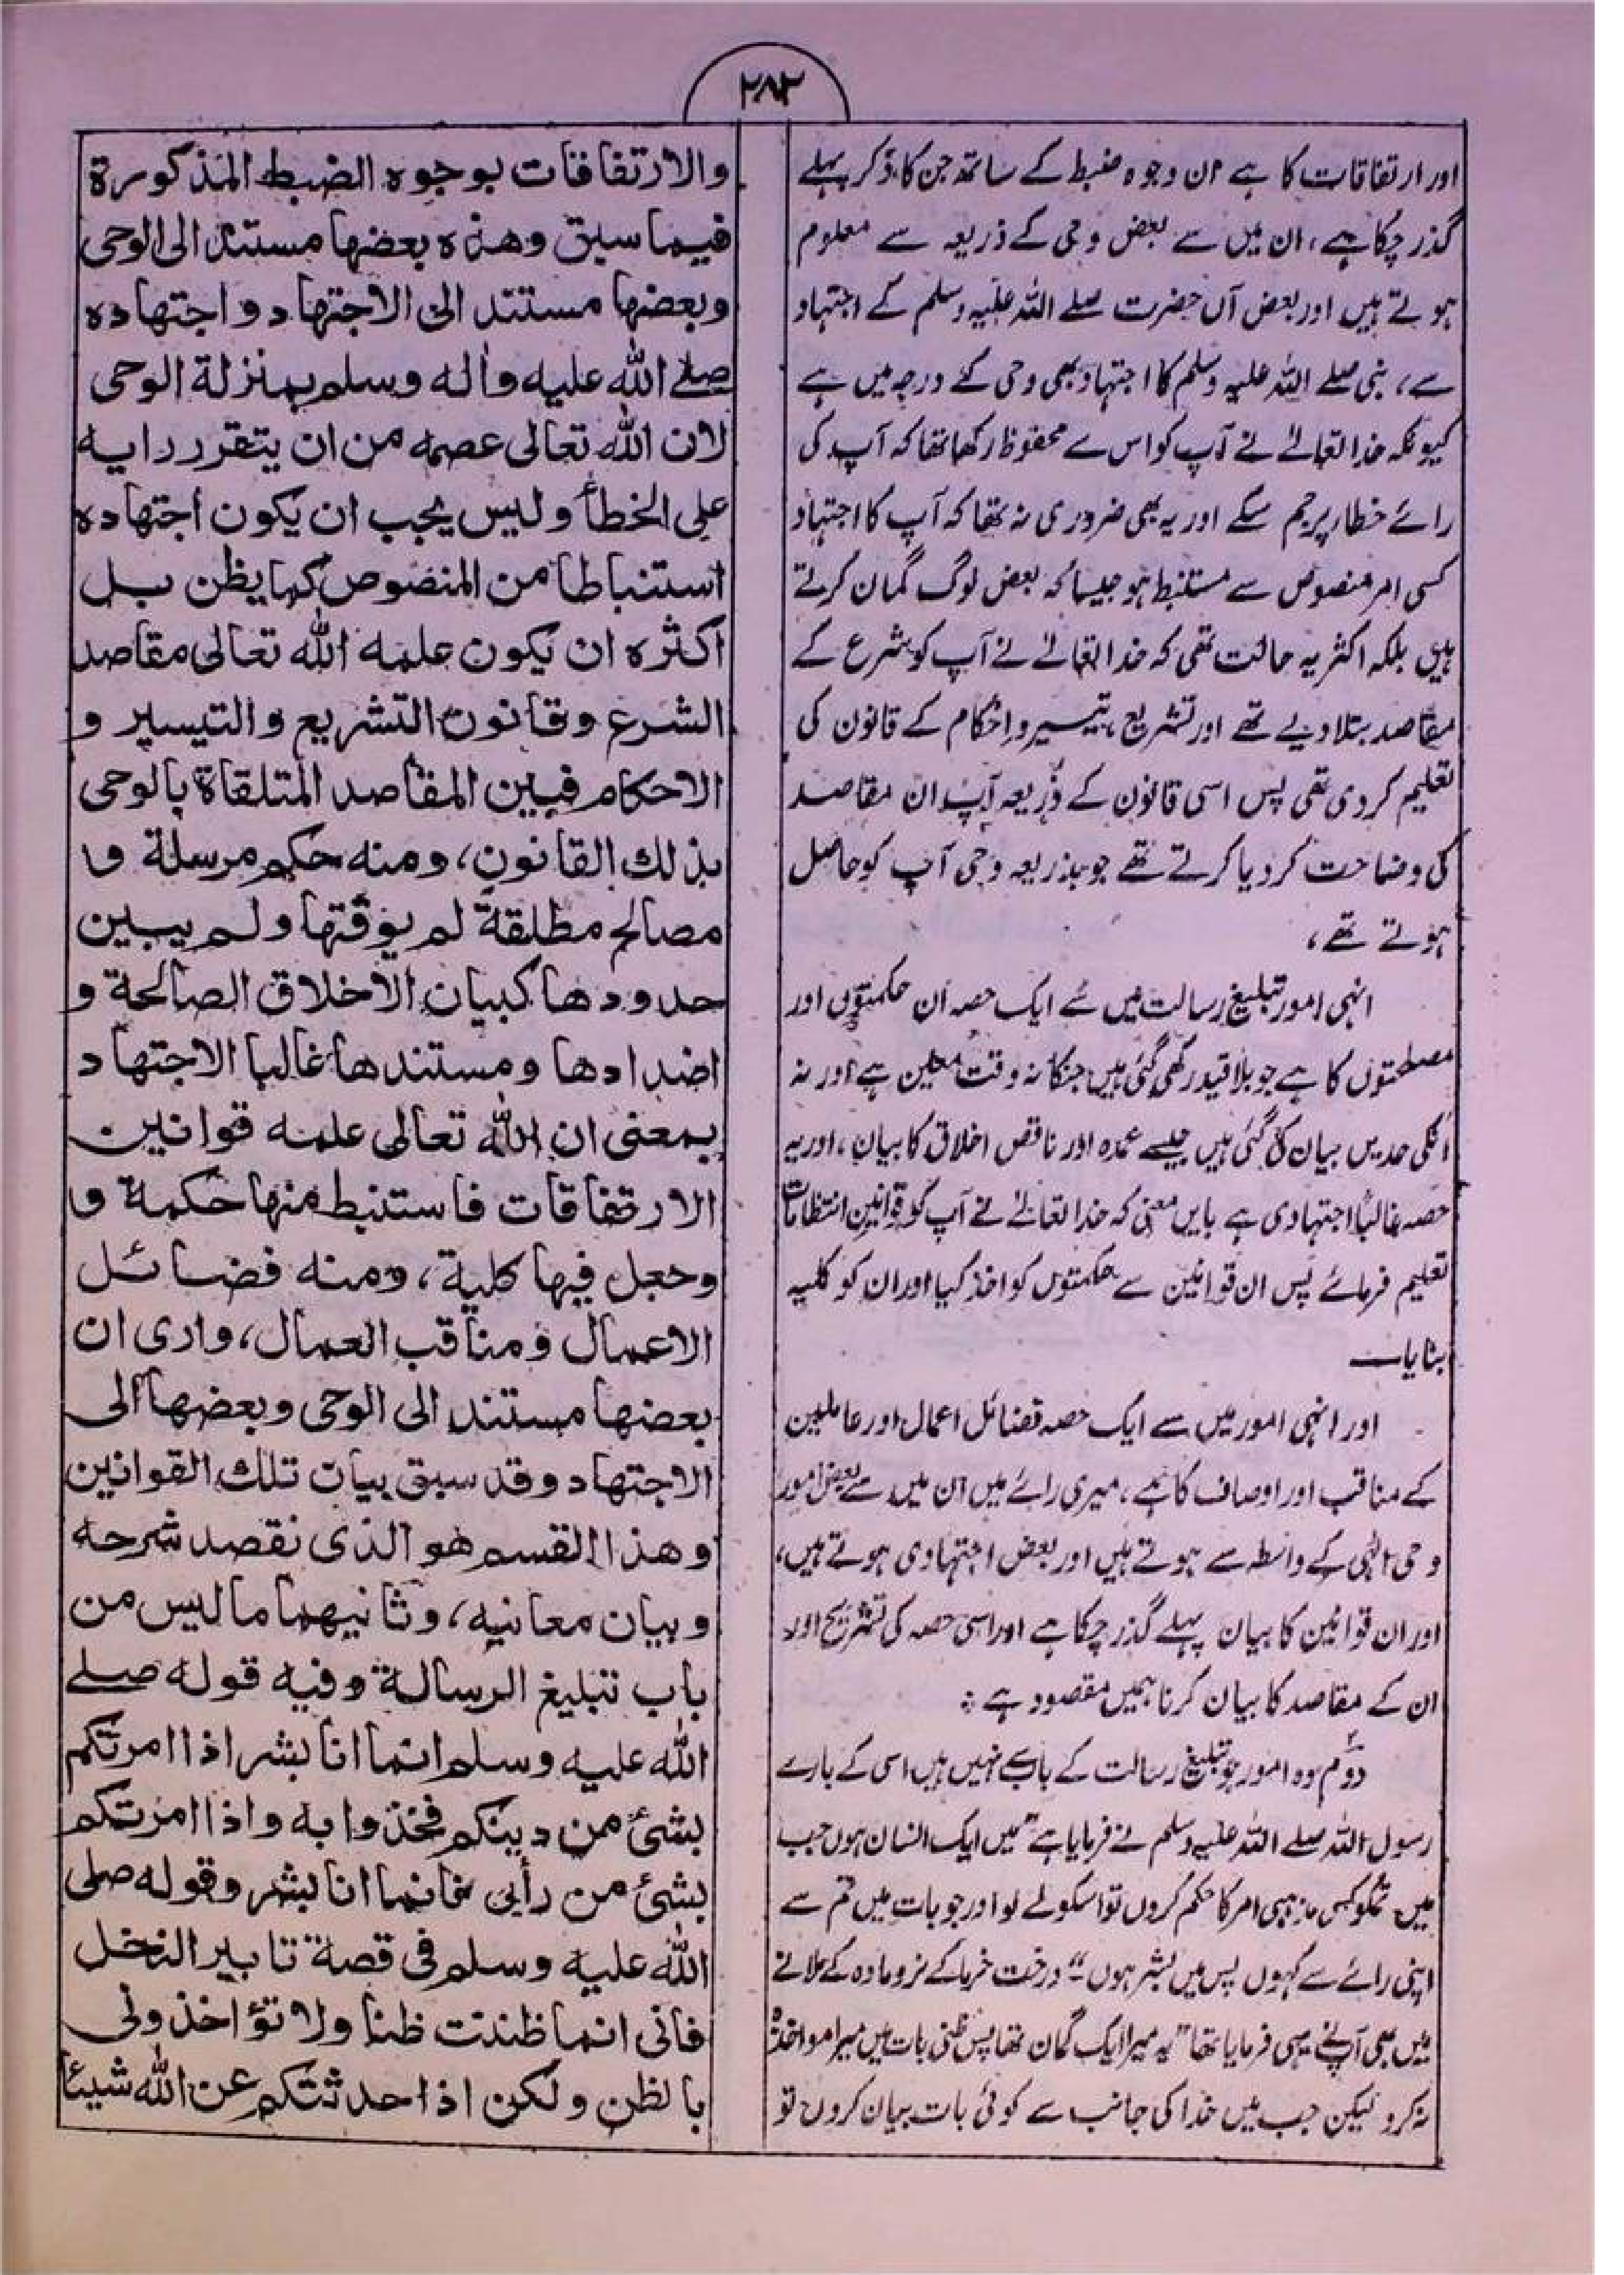 ۲۸۲
اور ارتفاقات کا ہے ان وجوہ ضبط کے ساتھ جن کا ذکر پہلے
گذر چکا ہے، ان میں سے بعض وحی کے ذریعہ سے معلوم
ہوتے ہیں اور بعض آں حضرت صلے اللہ علیہ وسلم کے اجتہاد
سے، نبی صلے اللہ علیہ وسلم کا اجتہاد بھی وحی کے درجہ میں ہے
کیونکہ خدا تعالےٰ نے آپ کو اس سے محفوظ رکھا تھا کہ آپ کی
رائے خطار پر جم سکے اور یہ بھی ضروری نہ تھا کہ آپ کا اجتہاد
کسی امر منصوص سے مستنبط ہو جیسا کہ بعض لوگ گمان کرتے
ہیں بلکہ اکثر یہ حالت تھی کہ خدا تعالےٰ نے آپ کو شرع کے
مقاصد بتلا دیے تھے اور تشریع، تیسیر و احکام کے قانون کی
تعلیم کر دی تھی پس اسی قانون کے ذریعہ آپ ان مقاصد
کی وضاحت کر دیا کرتے تھے جو بذریعہ وحی آپ کو حاصل
ہوتے تھے،
انہی امور تبلیغ رسالت میں سے ایک حصہ ان حکمتوں اور
مصلحتوں کا ہے جو بلا قید رکھی گئی ہیں جنکا نہ وقت معین ہے اور نہ
انکی حدیں بیان کی گئی ہیں جیسے عمدہ اور ناقص اخلاق کا بیان، اور یہ
حصہ غالبًا اجتہادی ہے بایں معنی کہ خدا تعالےٰ نے آپ کو قوانین انتظامات
تعلیم فرمائے پس ان قوانین سے حکمتوں کو اخذ کیا اور ان کو کلیہ
بنایا۔
اور انہی امور میں سے ایک حصہ فضائل اعمال اور عاملین
کے مناقب اور اوصاف کا ہے، میری رائے میں ان میں سے بعض امور
وحی الٰہی کے واسطہ سے ہوتے ہیں اور بعض اجتہادی ہوتے ہیں،
اور ان قوانین کا بیان پہلے گذر چکا ہے اور اسی حصہ کی تشریح اور
ان کے مقاصد کا بیان کرنا ہمیں مقصود ہے ؛
دوم وہ امور جو تبلیغ رسالت کے باب سے نہیں ہیں اسی کے بارے
رسول اللہ صلے اللہ علیہ وسلم نے فرمایا ہے "میں ایک انسان ہوں جب
میں تمکو کسی مذہبی امر کا حکم کروں تو اسکو لے لو اور جو بات میں تم سے
اپنی رائے سے کہوں پس میں بشر ہوں" درخت خرما کے نر و مادہ کے ملانے
میں بھی آپ نے یہی فرمایا تھا "یہ میرا ایک گمان تھا پس ظنی بات میں میرا مواخذہ
نہ کرو لیکن جب میں خدا کی جانب سے کوئی بات بیان کروں تو
والارتفاقات بوجوه الضبط المذكورة
فيما سبق وهذه بعضها مستند الى الوحى
وبعضها مستند الى الاجتهاد واجتهاده
صلے الله عليه وأله وسلم بمنزلة الوحى
لان الله تعالى عصمه من ان يتقرر رايه
على الخطأ وليس يجب ان يكون اجتهاده
استنباطا من المنصوص كما يظن بل
اكثره ان يكون علمه الله تعالى مقاصد
الشرع وقانون التشريع والتيسير و
الاحكام فبين المقاصد المتلقاة بالوحى
بذلك القانون، ومنه حكم مرسلة و
مصالح مطلقة لم يوقتها ولم يبين
حدودها كبيان الاخلاق الصالحة و
اضدادها ومستندها غالبا الاجتهاد
بمعنى ان الله تعالى علمه قوانين
الارتفاقات فاستنبط منها حكمة و
وجعل فيها كلية، ومنه فضائل
الاعمال ومناقب العمال، وارى ان
بعضها مستند الى الوحى وبعضها الى
الاجتهاد وقد سبق بيان تلك القوانين
وهذا القسم هو الذى نقصد شرحه
وبيان معانيه، وثانيهما ما ليس من
باب تبليغ الرسالة وفيه قوله صلے
الله عليه وسلم انما انا بشر اذا امرتكم
بشئ من دينكم فخذوا به واذا امرتكم
بشئ من رأيى فانما انا بشر وقوله صلى
الله عليه وسلم فى قصة تابير النخل
فانى انما ظننت ظنا ولا تؤاخذونى
بالظن ولكن اذا حدثتكم عن الله شيئا